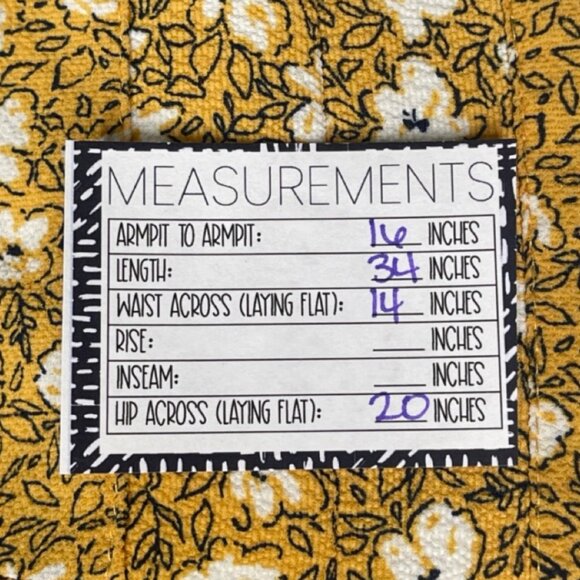 MEASUREMENTS
ARMPIT TO ARMPIT: 16 INCHES
LENGTH: 34 INCHES
WAIST ACROSS (LAYING FLAT): 14 INCHES
RISE: ____ INCHES
INSEAM: ____ INCHES
HIP ACROSS (LAYING FLAT): 20 INCHES